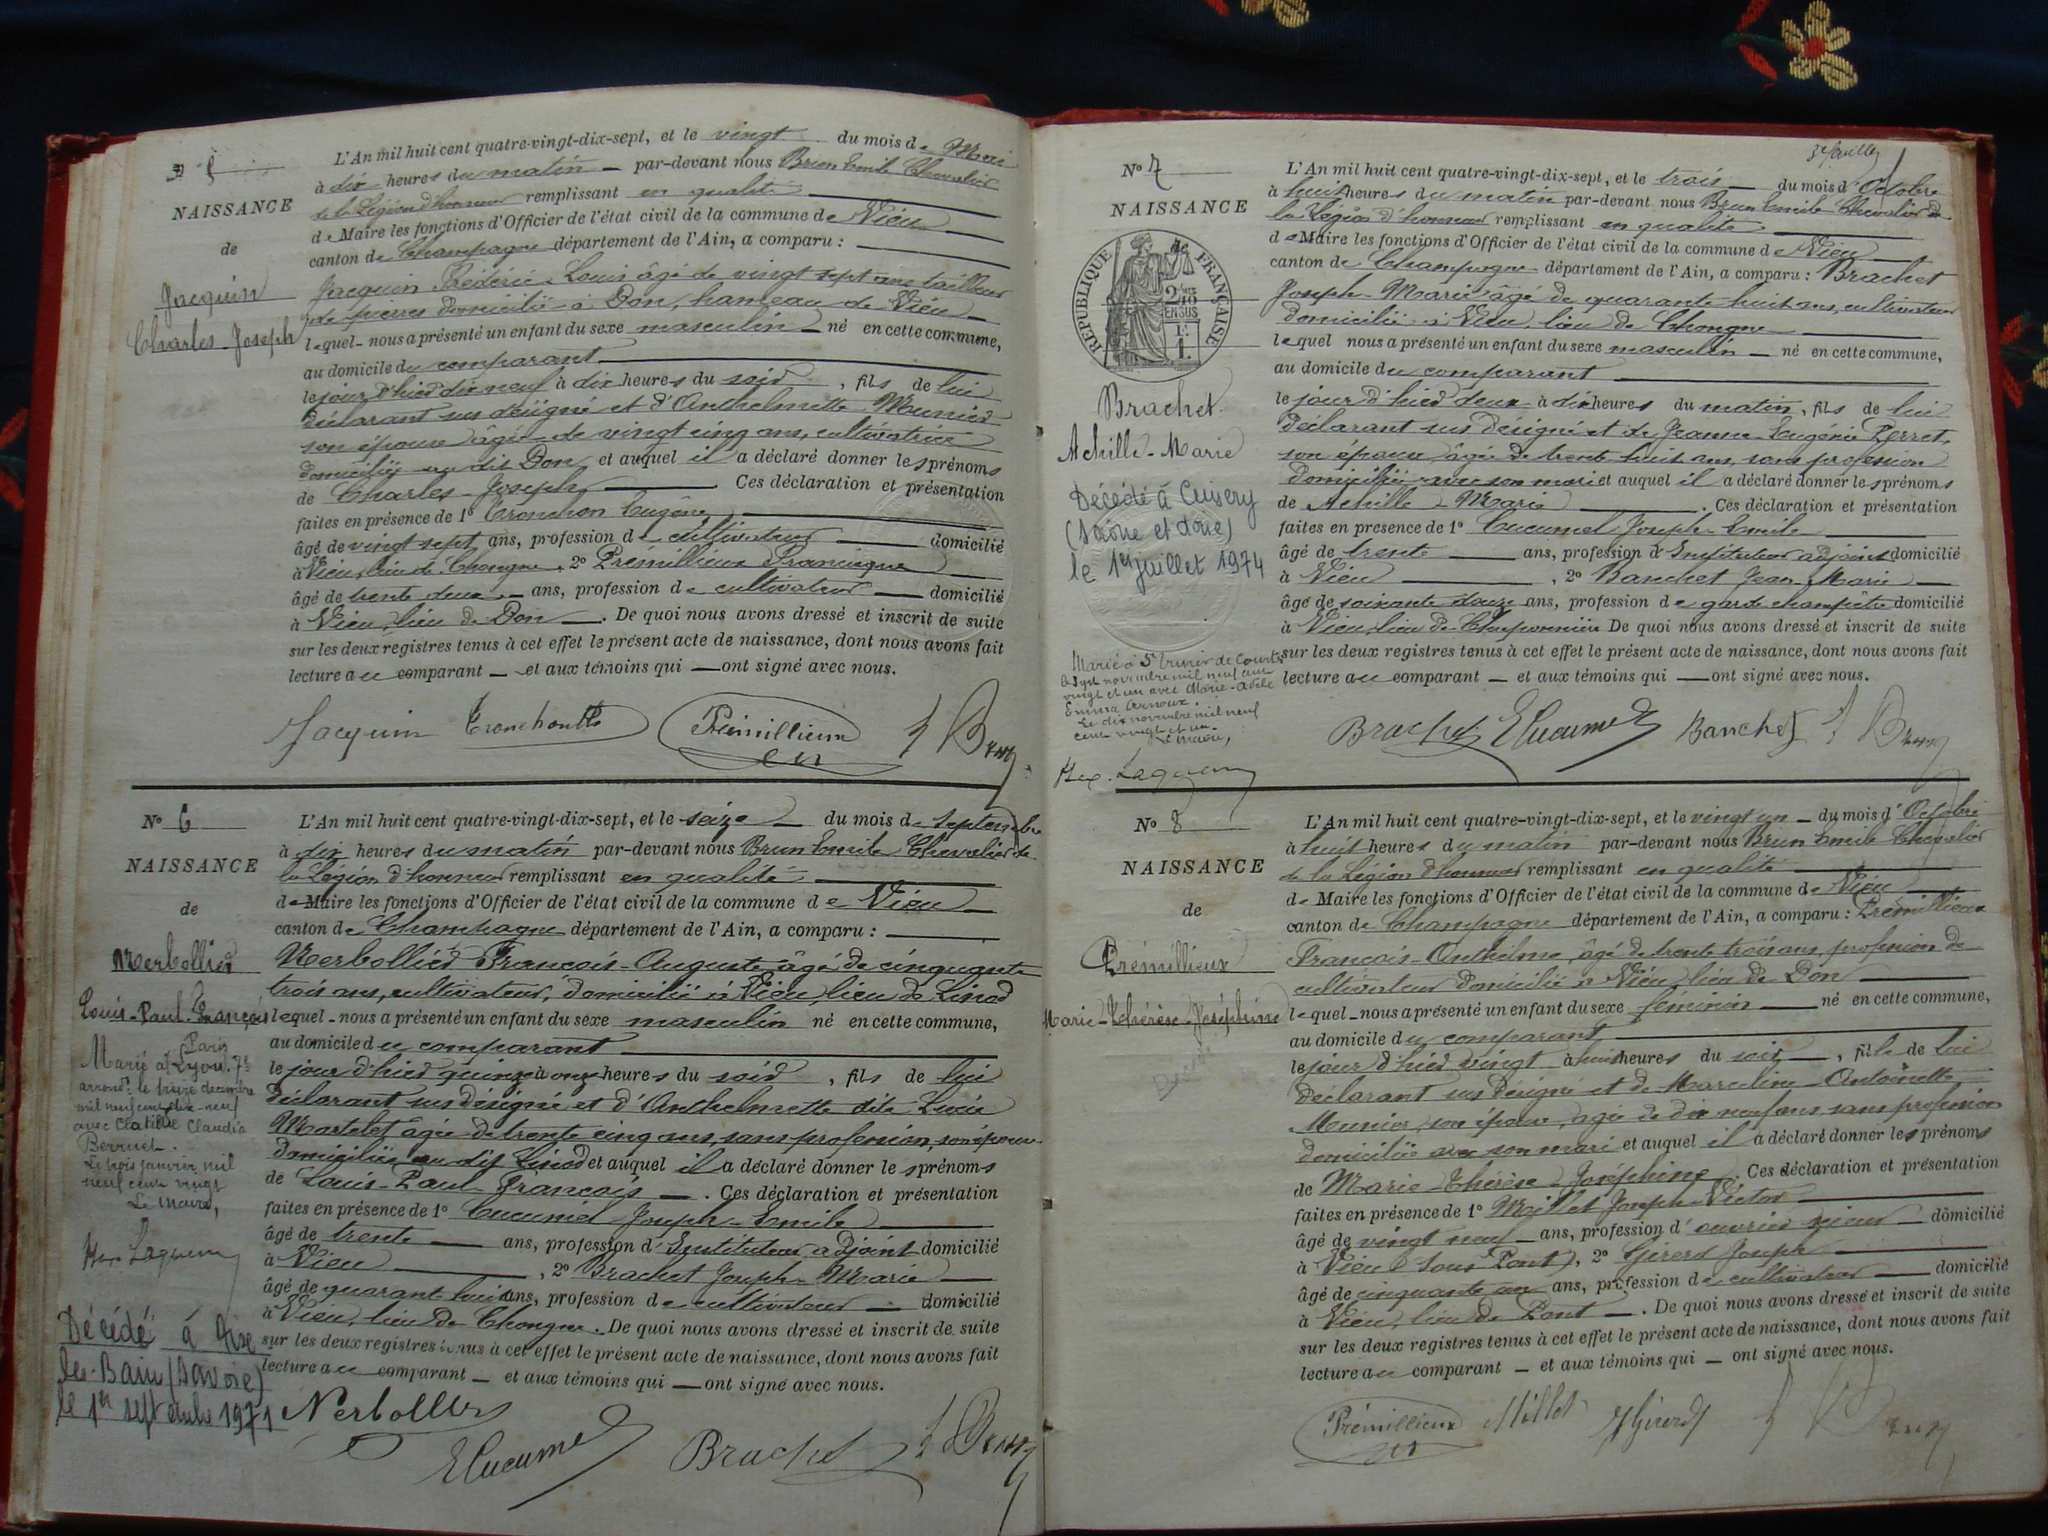 N° 5
NAISSANCE
de
Jacquin
Charles-Joseph
L'An mil huit cent quatre-vingt-dix-sept, et le vingt du mois de Mai
à dix heures du matin par-devant nous Brun Emile Chevalier
de la Légion d'honneur remplissant en qualité
de Maire les fonctions d'Officier de l'état civil de la commune de Vieu
canton de Champagne département de l'Ain, a comparu :
Jacquin Frédéric Louis âgé de vingt sept ans tailleur
de pierres domicilié à Don, hameau de Vieu
lequel nous a présenté un enfant du sexe masculin né en cette commune,
au domicile du comparant
le jour d'hier dix neuf à dix heures du soir, fils de lui
déclarant sus désigné et d'Anthelmette Munier
son épouse âgée de vingt cinq ans, cultivatrice
domiciliée au dit Don et auquel il a déclaré donner les prénoms
de Charles-Joseph Ces déclaration et présentation
faites en présence de 1° Tronchon Eugène
âgé de vingt sept ans, profession de cultivateur domicilié
à Vieu, lieu de Chongne, 2° Prémillieux Francisque
âgé de trente deux ans, profession de cultivateur domicilié
à Vieu, lieu de Don. De quoi nous avons dressé et inscrit de suite
sur les deux registres tenus à cet effet le présent acte de naissance, dont nous avons fait
lecture au comparant et aux témoins qui ont signé avec nous.
Jacquin Tronchon Prémillieux Brun
N° 6
NAISSANCE
de
Nerbollier
Louis-Paul-François
Paris
Marié à Lyon 7e
arrond. le treize décembre
mil neuf cent dix-neuf
avec Clotilde Claudia
Le trois janvier mil
neuf cent vingt
Le Maire,
Décédé à Aix
les-Bains (Savoie)
le 1er septembre 1971
L'An mil huit cent quatre-vingt-dix-sept, et le seize du mois de septembre
à dix heures du matin par-devant nous Brun Emile Chevalier de
la Légion d'honneur remplissant en qualité
de Maire les fonctions d'Officier de l'état civil de la commune de Vieu
canton de Champagne département de l'Ain, a comparu :
Nerbollier François-Auguste âgé de cinquante
trois ans, cultivateur, domicilié à Vieu lieu de Linod
lequel nous a présenté un enfant du sexe masculin né en cette commune,
au domicile du comparant
le jour d'hier quinze à onze heures du soir, fils de lui
déclarant sus désigné et d'Anthelmette dite Lucie
Martelet âgée de trente cinq ans, sans profession, son épouse
domiciliée au dit Linod et auquel il a déclaré donner les prénoms
de Louis-Paul-François. Ces déclaration et présentation
faites en présence de 1° Cucumel Joseph-Emile
âgé de trente ans, profession d'Instituteur adjoint domicilié
à Vieu, 2° Brachet Joseph-Marie
âgé de quarante huit ans, profession de cultivateur domicilié
à Vieu, lieu de Chongne. De quoi nous avons dressé et inscrit de suite
sur les deux registres tenus à cet effet le présent acte de naissance, dont nous avons fait
lecture au comparant et aux témoins qui ont signé avec nous.
Nerbollier
E Cucumel Brachet Brun
3e feuillet
N° 7
NAISSANCE
de
RÉPUBLIQUE FRANÇAISE
2/10
EN SUS
Brachet
Achille-Marie
Décédé à Cuisery
(Saône et Loire)
le 1er juillet 1974
Marié à St Trivier de Courtes
le sept novembre mil neuf cent
vingt et un avec Marie-Adèle
Emma Arnoux.
Le dix novembre mil neuf
cent vingt et un.
Le maire,
L'An mil huit cent quatre-vingt-dix-sept, et le trois du mois d'Octobre
à huit heures du matin par-devant nous Brun Emile Chevalier de
la Légion d'honneur remplissant en qualité
de Maire les fonctions d'Officier de l'état civil de la commune de Vieu
canton de Champagne département de l'Ain, a comparu : Brachet
Joseph-Marie âgé de quarante huit ans, cultivateur
domicilié à Vieu, lieu de Chongne
lequel nous a présenté un enfant du sexe masculin né en cette commune,
au domicile du comparant
le jour d'hier deux à dix heures du matin, fils de lui
déclarant sus désigné et de Jeanne Eugénie Perret
son épouse âgée de trente huit ans, sans profession
domiciliée avec son mari et auquel il a déclaré donner les prénoms
de Achille-Marie. Ces déclaration et présentation
faites en présence de 1° Cucumel Joseph-Emile
âgé de trente ans, profession d'Instituteur adjoint domicilié
à Vieu, 2° Banchet Jean-Marie
âgé de soixante douze ans, profession de garde champêtre domicilié
à Vieu, lieu de De quoi nous avons dressé et inscrit de suite
sur les deux registres tenus à cet effet le présent acte de naissance, dont nous avons fait
lecture au comparant et aux témoins qui ont signé avec nous.
Brachet E Cucumel Banchet Brun
N° 8
NAISSANCE
de
Prémillieux
Marie-Thérèse-Joséphine
L'An mil huit cent quatre-vingt-dix-sept, et le vingt un du mois d'Octobre
à huit heures du matin par-devant nous Brun Emile Chevalier
de la Légion d'honneur remplissant en qualité
de Maire les fonctions d'Officier de l'état civil de la commune de Vieu
canton de Champagne département de l'Ain, a comparu : Prémillieux
François-Anthelme, âgé de trente trois ans, profession de
cultivateur domicilié à Vieu, lieu de Don
lequel nous a présenté un enfant du sexe féminin né en cette commune,
au domicile du comparant
le jour d'hier vingt à huit heures du soir, fille de lui
déclarant sus désigné et de Marceline-Antoinette
Munier, son épouse, âgée de dix neuf ans sans profession
domiciliée avec son mari et auquel il a déclaré donner les prénoms
de Marie-Thérèse-Joséphine. Ces déclaration et présentation
faites en présence de 1° Millet Joseph-Victor
âgé de vingt neuf ans, profession d'ouvrier domicilié
à Vieu (sous Pont), 2° Girerd Joseph
âgé de cinquante un ans, profession de cultivateur domicilié
à Vieu, lieu de Pont. De quoi nous avons dressé et inscrit de suite
sur les deux registres tenus à cet effet le présent acte de naissance, dont nous avons fait
lecture au comparant et aux témoins qui ont signé avec nous.
Prémillieux Millet J Girerd Brun